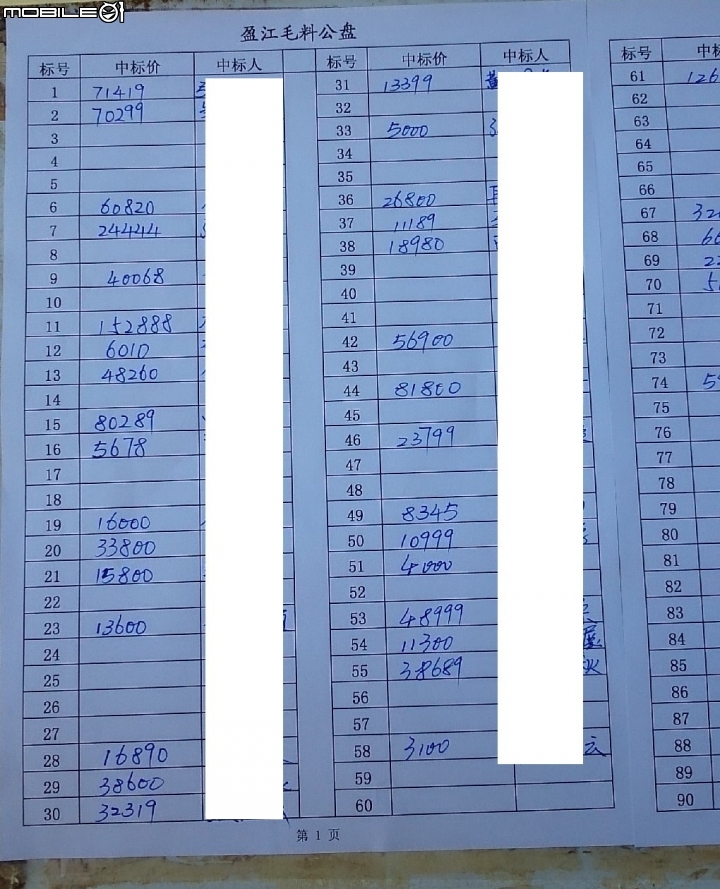 MOBILE01
盈江毛料公盘
标号 中标价 中标人 标号 中标价 中标人 标号
1 71419 31 13399 61
2 70299 32 62
3 33 5000 63
4 34 64
5 35 65
6 60820 36 26800 66
7 24444 37 11189 67
8 38 18980 68
9 40068 39 69
10 40 70
11 152888 41 71
12 6010 42 56900 72
13 48260 43 73
14 44 81800 74
15 80289 45 75
16 5678 46 23799 76
17 47 77
18 48 78
19 16000 49 8345 79
20 33800 50 10999 80
21 15800 51 4000 81
22 52 82
23 13600 53 48999 83
24 54 11300 84
25 55 38689 85
26 56 86
27 57 87
28 16890 58 3100 云 88
29 38600 59 89
30 32319 60 90
第 1 页